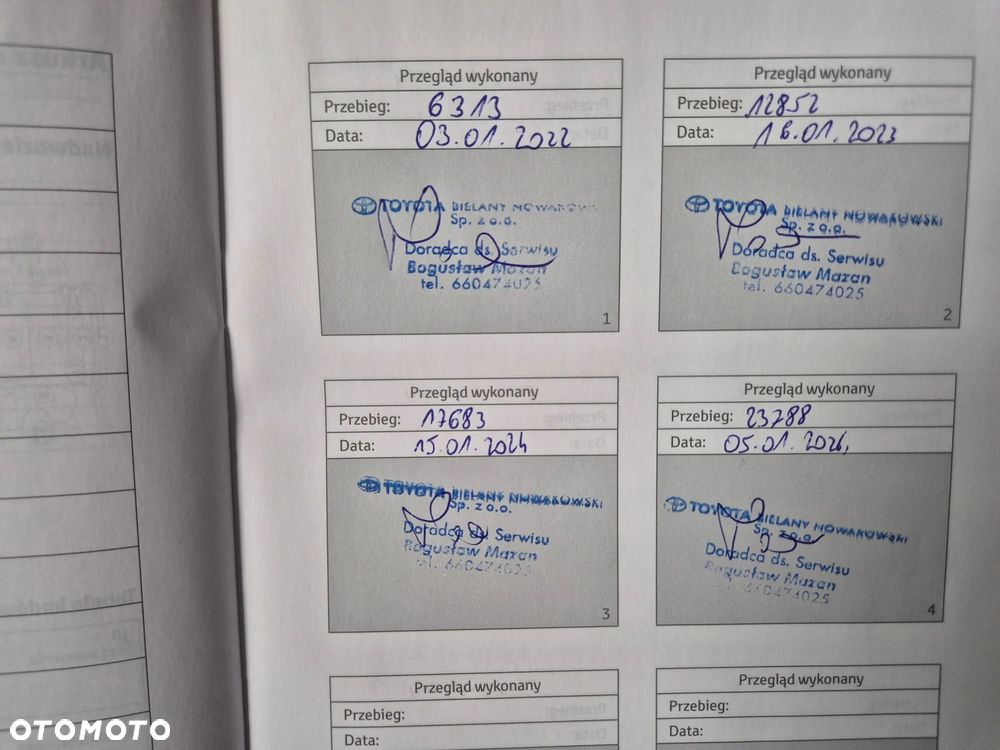 Przegląd wykonany
Przebieg: 6313
Data: 03.01.2022
TOYOTA BIELANY NOWAKOW
Sp. z o.o.
Doradca ds. Serwisu
Bogusław Mazan
tel. 660474025
1
Przegląd wykonany
Przebieg: 12852
Data: 18.01.2023
TOYOTA BIELANY NOWAKOWSKI
Sp. z o.o.
Doradca ds. Serwisu
Bogusław Mazan
tel. 660474025
2
Przegląd wykonany
Przebieg: 17683
Data: 15.01.2024
TOYOTA BIELANY NOWAKOWSKI
Sp. z o.o.
Doradca ds. Serwisu
Bogusław Mazan
tel. 660474025
3
Przegląd wykonany
Przebieg: 23788
Data: 05.01.2026,
TOYOTA BIELANY NOWAKOWSKI
Sp. z o.o.
Doradca ds. Serwisu
Bogusław Mazan
660474025
4
Przegląd wykonany
Przebieg:
Data:
Przegląd wykonany
Przebieg:
Data:
OTOMOTO